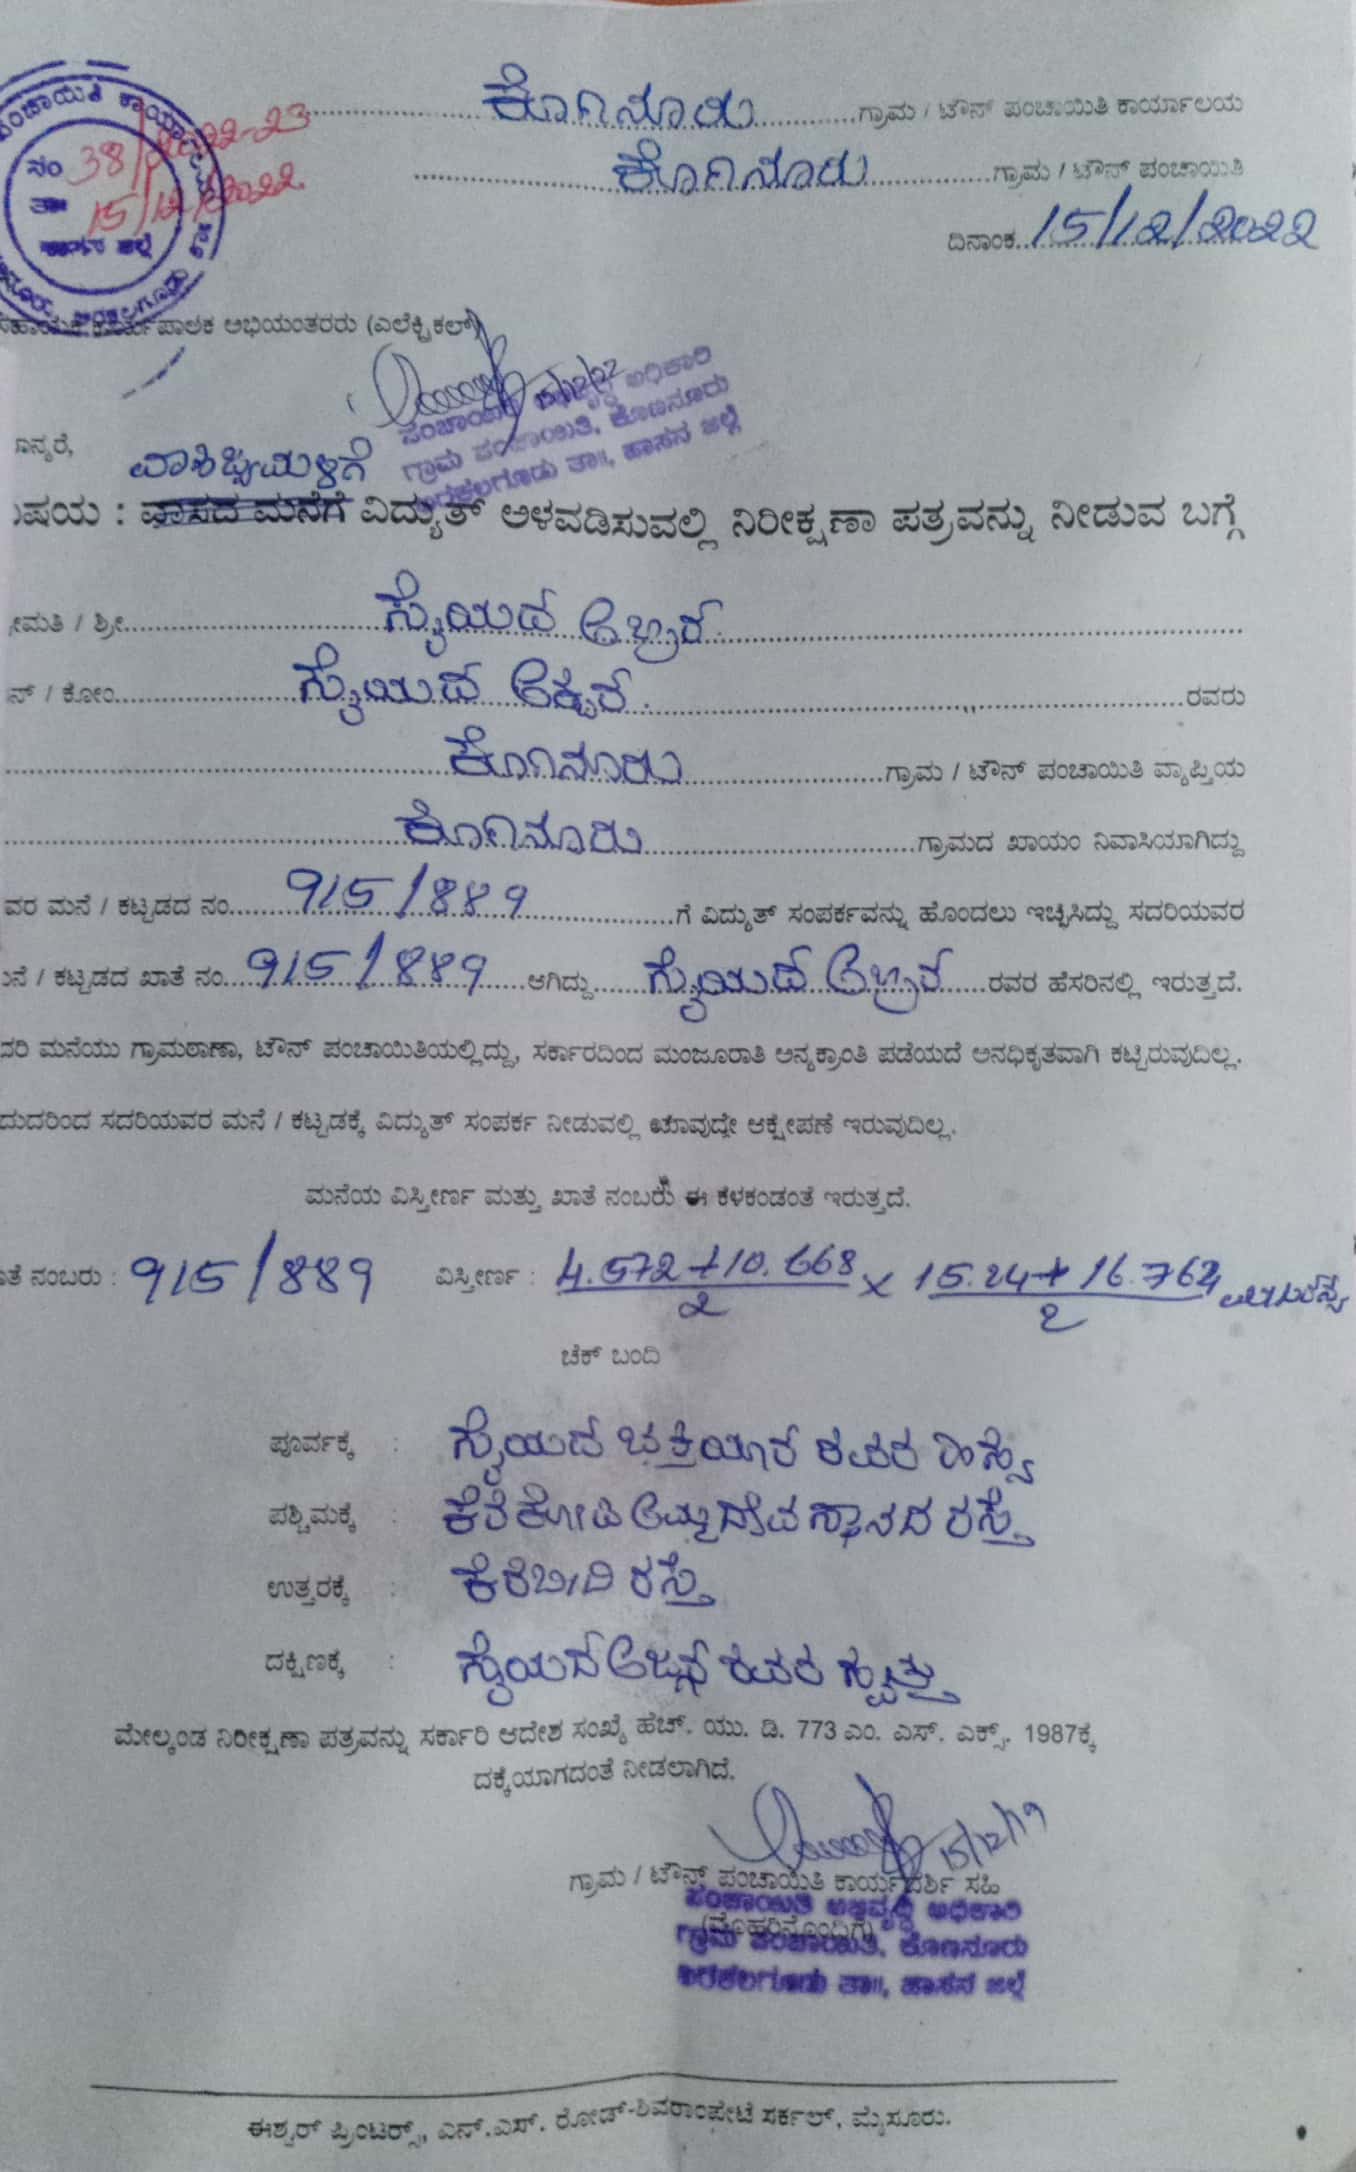 ಪಂಚಾಯಿತಿ ಕಾರ್ಯಾ
ನಂ 38/2022-23
ತಾ 15/12/2022
ಹಾಸನ ಜಿಲ್ಲೆ
ಕೊಣನೂರು ಗ್ರಾಮ / ಟೌನ್ ಪಂಚಾಯಿತಿ ಕಾರ್ಯಾಲಯ
ಕೊಣನೂರು ಗ್ರಾಮ / ಟೌನ್ ಪಂಚಾಯಿತಿ
ದಿನಾಂಕ 15/12/2022
ಸಹಾಯಕ ಕಾರ್ಯಪಾಲಕ ಅಭಿಯಂತರರು (ಎಲೆಕ್ಟ್ರಿಕಲ್)
15/12/22
ಪಂಚಾಯಿತಿ ಅಭಿವೃದ್ಧಿ ಅಧಿಕಾರಿ
ಗ್ರಾಮ ಪಂಚಾಯಿತಿ, ಕೊಣನೂರು
ಅರಕಲಗೂಡು ತಾ||, ಹಾಸನ ಜಿಲ್ಲೆ
ಮಾನ್ಯರೆ,
ವಾಣಿಜ್ಯ ಮಳಿಗೆ
ವಿಷಯ : ವಾಸದ ಮನೆಗೆ ವಿದ್ಯುತ್ ಅಳವಡಿಸುವಲ್ಲಿ ನಿರೀಕ್ಷಣಾ ಪತ್ರವನ್ನು ನೀಡುವ ಬಗ್ಗೆ
ಶ್ರೀಮತಿ / ಶ್ರೀ ಸೈಯದ್ ಅಬ್ರಾರ್
ಬಿನ್ / ಕೋಂ ಸೈಯದ್ ಅಕ್ಬರ್ ರವರು
ಕೊಣನೂರು ಗ್ರಾಮ / ಟೌನ್ ಪಂಚಾಯಿತಿ ವ್ಯಾಪ್ತಿಯ
ಕೊಣನೂರು ಗ್ರಾಮದ ಖಾಯಂ ನಿವಾಸಿಯಾಗಿದ್ದು
ವರ ಮನೆ / ಕಟ್ಟಡದ ನಂ. 915/889 ಗೆ ವಿದ್ಯುತ್ ಸಂಪರ್ಕವನ್ನು ಹೊಂದಲು ಇಚ್ಛಿಸಿದ್ದು ಸದರಿಯವರ
ಮನೆ / ಕಟ್ಟಡದ ಖಾತೆ ನಂ. 915/889 ಆಗಿದ್ದು ಸೈಯದ್ ಅಬ್ರಾರ್ ರವರ ಹೆಸರಿನಲ್ಲಿ ಇರುತ್ತದೆ.
ಸದರಿ ಮನೆಯು ಗ್ರಾಮಠಾಣಾ, ಟೌನ್ ಪಂಚಾಯಿತಿಯಲ್ಲಿದ್ದು, ಸರ್ಕಾರದಿಂದ ಮಂಜೂರಾತಿ ಅನ್ಯಕ್ರಾಂತಿ ಪಡೆಯದೆ ಅನಧಿಕೃತವಾಗಿ ಕಟ್ಟಿರುವುದಿಲ್ಲ.
ದುದರಿಂದ ಸದರಿಯವರ ಮನೆ / ಕಟ್ಟಡಕ್ಕೆ ವಿದ್ಯುತ್ ಸಂಪರ್ಕ ನೀಡುವಲ್ಲಿ ಯಾವುದೇ ಆಕ್ಷೇಪಣೆ ಇರುವುದಿಲ್ಲ.
ಮನೆಯ ವಿಸ್ತೀರ್ಣ ಮತ್ತು ಖಾತೆ ನಂಬರು ಈ ಕೆಳಕಂಡಂತೆ ಇರುತ್ತದೆ.
ಖಾತೆ ನಂಬರು : 915/889 ವಿಸ್ತೀರ್ಣ : 4.572+10.668/2 x 15.24+16.764/2 ಮೀಟರ್ಸ್
ಚೆಕ್ ಬಂದಿ
ಪೂರ್ವಕ್ಕೆ : ಸೈಯದ್ ಭಕ್ತಿಯಾರ್ ರವರ ಹಿಸ್ಸೆ
ಪಶ್ಚಿಮಕ್ಕೆ : ಕೆರೆಕೋಡಿ ಅಮ್ಮ ದೇವಸ್ಥಾನದ ರಸ್ತೆ
ಉತ್ತರಕ್ಕೆ : ಕೆರೆಬೀದಿ ರಸ್ತೆ
ದಕ್ಷಿಣಕ್ಕೆ : ಸೈಯದ್ ರವರ ಸ್ವತ್ತು
ಮೇಲ್ಕಂಡ ನಿರೀಕ್ಷಣಾ ಪತ್ರವನ್ನು ಸರ್ಕಾರಿ ಆದೇಶ ಸಂಖ್ಯೆ ಹೆಚ್. ಯು. ಡಿ. 773 ಎಂ. ಎಸ್. ಎಕ್ಸ್. 1987ಕ್ಕೆ
ದಕ್ಕೆಯಾಗದಂತೆ ನೀಡಲಾಗಿದೆ.
15/12/19
ಗ್ರಾಮ / ಟೌನ್ ಪಂಚಾಯಿತಿ ಕಾರ್ಯದರ್ಶಿ ಸಹಿ
(ಮೊಹರಿನೊಂದಿಗೆ)
ಪಂಚಾಯಿತಿ ಅಭಿವೃದ್ಧಿ ಅಧಿಕಾರಿ
ಗ್ರಾಮ ಪಂಚಾಯಿತಿ, ಕೊಣನೂರು
ಅರಕಲಗೂಡು ತಾ||, ಹಾಸನ ಜಿಲ್ಲೆ
ಈಶ್ವರ್ ಪ್ರಿಂಟರ್ಸ್, ಎನ್.ಎಸ್. ರೋಡ್-ಶಿವರಾಂಪೇಟೆ ಸರ್ಕಲ್, ಮೈಸೂರು.